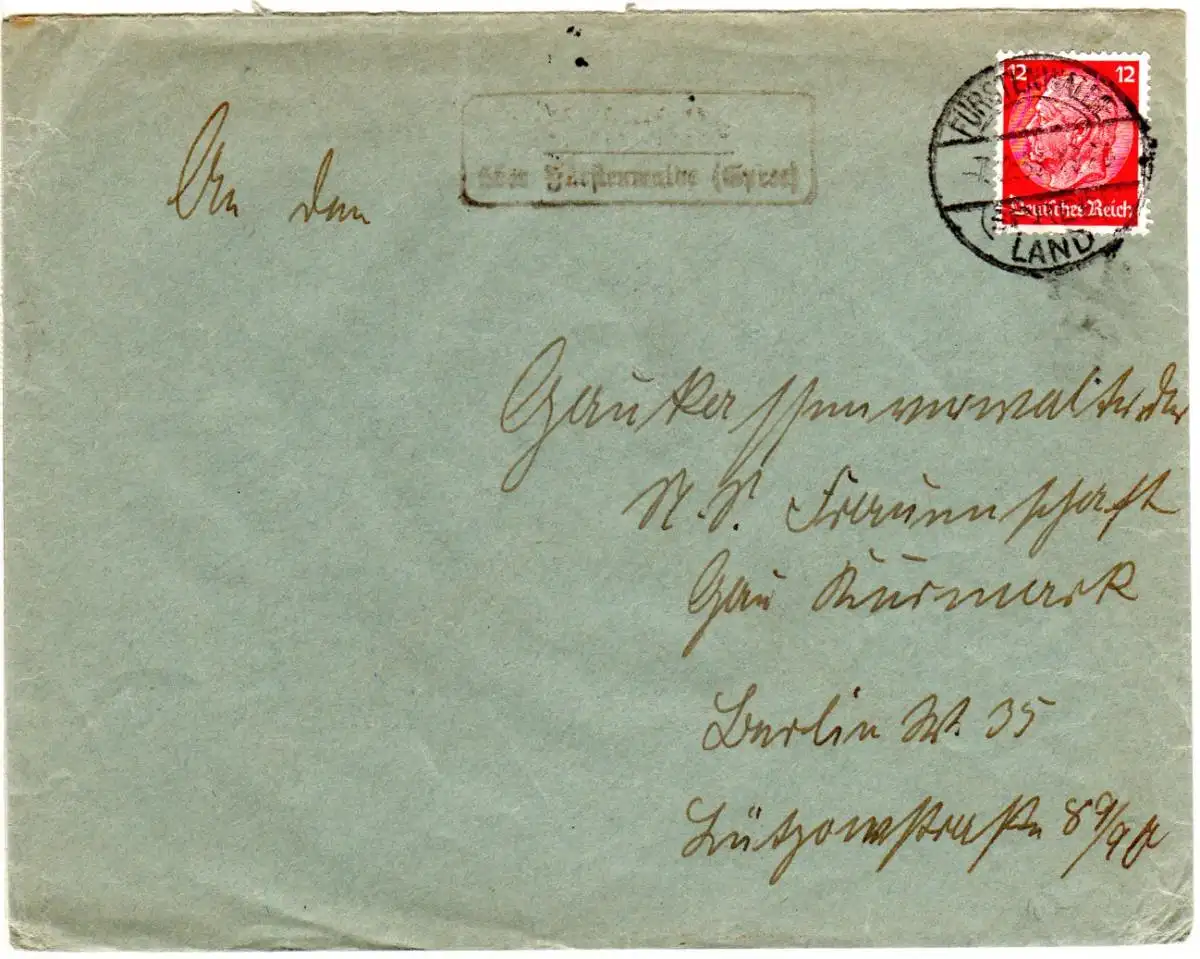 12 12
FÜRSTENWALDE
Deutsches Reich
LAND
über Fürstenwalde (Spree)
An den
Gaukassenverwalter der
N. S. Frauenschaft
Gau Kurmark
Berlin W. 35
Lützowstraße 89/90